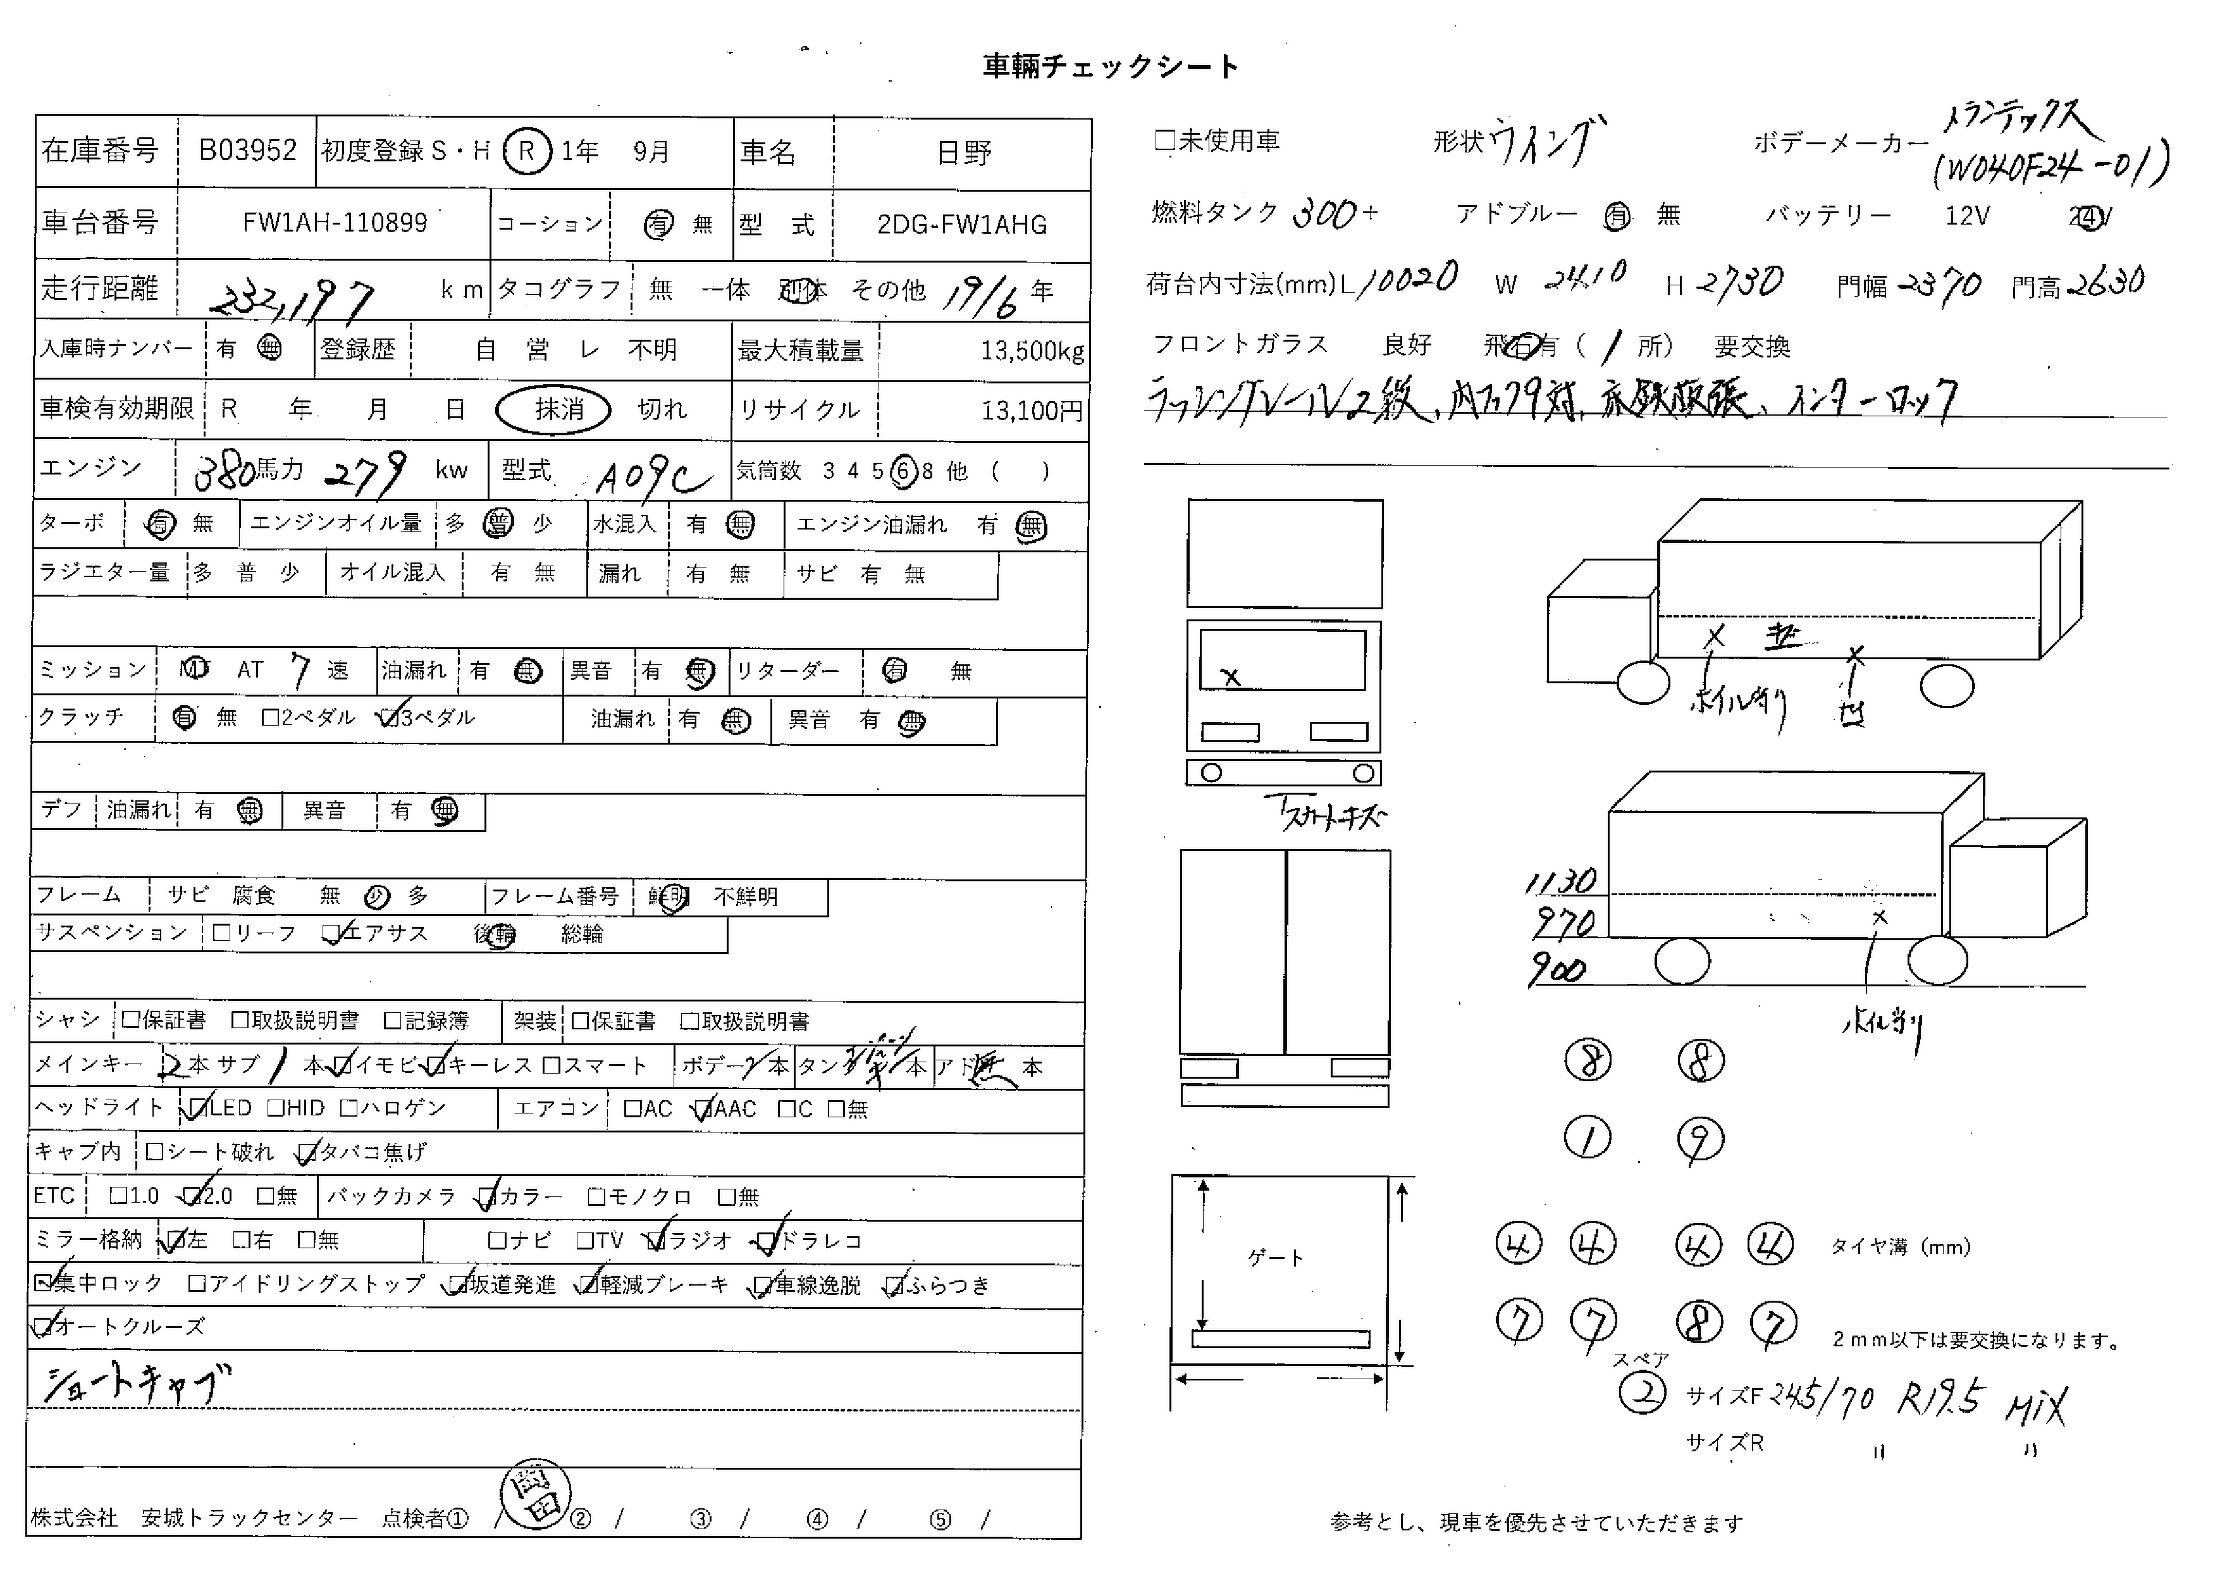 車輛チェックシート
在庫番号 B03952 初度登録 S・H R 1年 9月 車名 日野
車台番号 FW1AH-110899 コーション 有 無 型 式 2DG-FW1AHG
走行距離 232,197 km タコグラフ 無 一体 別体 その他 19/6 年
入庫時ナンバー 有 無 登録歴 自 営 レ 不明 最大積載量 13,500kg
車検有効期限 R 年 月 日 抹消 切れ リサイクル 13,100円
エンジン 380馬力 279 kw 型式 A09C 気筒数 3 4 5 6 8 他 ( )
ターボ 有 無 エンジンオイル量 多 普 少 水混入 有 無 エンジン油漏れ 有 無
ラジエター量 多 普 少 オイル混入 有 無 漏れ 有 無 サビ 有 無
ミッション MT AT 7 速 油漏れ 有 無 異音 有 無 リターダー 有 無
クラッチ 有 無 □2ペダル ☑3ペダル 油漏れ 有 無 異音 有 無
デフ 油漏れ 有 無 異音 有 無
フレーム サビ 腐食 無 少 多 フレーム番号 鮮明 不鮮明
サスペンション □リーフ ☑エアサス 後輪 総輪
シャシ □保証書 □取扱説明書 □記録簿 架装 □保証書 □取扱説明書
メインキー 2本 サブ 1 本 ☑イモビ ☑キーレス □スマート ボデー 本 タン 本 アド 無 本
ヘッドライト ☑LED □HID □ハロゲン エアコン □AC ☑AAC □C □無
キャブ内 □シート破れ ☑タバコ焦げ
ETC □1.0 ☑2.0 □無 バックカメラ ☑カラー □モノクロ □無
ミラー格納 ☑左 □右 □無 □ナビ □TV ☑ラジオ ☑ドラレコ
☑集中ロック □アイドリングストップ ☑坂道発進 ☑軽減ブレーキ ☑車線逸脱 ☑ふらつき
☑オートクルーズ
ショートキャブ
株式会社 安城トラックセンター 点検者① / ② / ③ / ④ / ⑤ /
□未使用車 形状 ウイング ボデーメーカー トランテックス
(W040F24-01)
燃料タンク 300+ アドブルー 有 無 バッテリー 12V 24V
荷台内寸法(mm) L 10020 W 2410 H 2730 門幅 2370 門高 2630
フロントガラス 良好 飛石有 ( 1 所) 要交換
ラッシングレール2段、内フック9対、床鉄板張、インターロック
キズ
ホイル当り 凹
下スカートキズ
1130
970
900
ホイル当り
⑧ ⑧
① ⑨
④ ④ ④ ④ タイヤ溝 (mm)
⑦ ⑦ ⑧ ⑦ 2mm以下は要交換になります。
ゲート
スペア
② サイズF 245/70 R19.5 MiX
サイズR 〃 〃
参考とし、現車を優先させていただきます